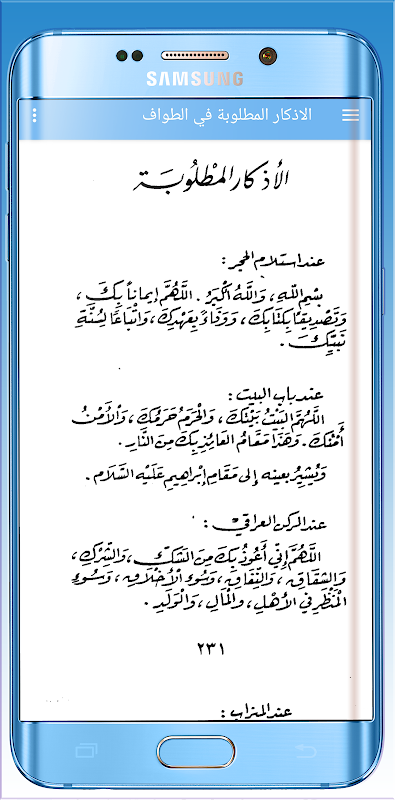 SAMSUNG
الاذكار المطلوبة في الطواف
الأذكار المطلوبة
عند استلام الحجر :
بِسْمِ اللهِ ، وَاللهُ أَكْبَرُ . اللَّهُمَّ إِيمَاناً بِكَ ،
وَتَصْدِيقًا بِكِتَابِكَ ، وَوَفَاءً بِعَهْدِكَ ، وَاتِّبَاعًا لِسُنَّةِ
نَبِيِّكَ .
عند باب البيت :
اللَّهُمَّ البَيْتُ بَيْتُكَ ، وَالْحَرَمُ حَرَمُكَ ، وَالْأَمْنُ
أَمْنُكَ . وَهَذَا مَقَامُ العَائِذِ بِكَ مِنَ النَّارِ .
وَيُشِيرُ بعينه إلى مَقَامِ إِبْرَاهِيمَ عَلَيْهِ السَّلَام .
عند الركن العراقي :
اللَّهُمَّ إِنِّي أَعُوذُ بِكَ مِنَ الشَّكِّ ، وَالشِّرْكِ ،
وَالشِّقَاقِ ، وَالنِّفَاقِ ، وَسُوءِ الْأَخْلَاقِ ، وَسُوءِ
الْمَنْظَرِ فِي الْأَهْلِ ، وَالْمَالِ ، وَالْوَلَدِ .
٢٣١
عند الميزاب :